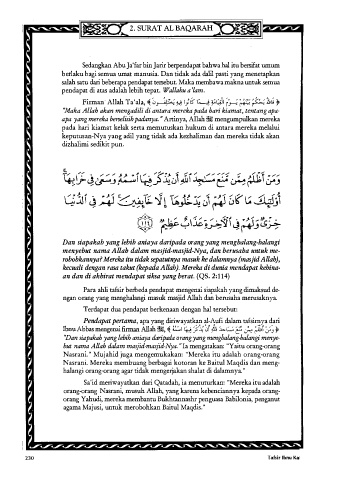 2. SURAT AL BAQARAH
Sedangkan Abu Ja'far bin Jarir berpendapat bahwa hal itu bersifat umum
berlaku bagi semua umat manusia. Dan tidak ada dalil pasti yang menetapkan
salah satu dari beberapa pendapat tersebut. Maka membawa makna untuk semua
pendapat di atas adalah lebih tepat. Wallahu a'lam.
Firman Allah Ta'ala, ﴿ فَاللَّهُ يَحْكُمُ بَيْنَهُمْ يَوْمَ الْقِيَامَةِ فِيمَا كَانُوا فِيهِ يَخْتَلِفُونَ ﴾
"Maka Allah akan mengadili di antara mereka pada hari kiamat, tentang apa-
apa yang mereka berselisih padanya." Artinya, Allah ﷻ mengumpulkan mereka
pada hari kiamat kelak serta memutuskan hukum di antara mereka melalui
keputusan-Nya yang adil yang tidak ada kezhaliman dan mereka tidak akan
dizhalimi sedikit pun.
وَمَنْ أَظْلَمُ مِمَّن مَّنَعَ مَسَٰجِدَ ٱللَّهِ أَن يُذْكَرَ فِيهَا ٱسْمُهُۥ وَسَعَىٰ فِى خَرَابِهَآ
أُو۟لَٰٓئِكَ مَا كَانَ لَهُمْ أَن يَدْخُلُوهَآ إِلَّا خَآئِفِينَ لَهُمْ فِى ٱلدُّنْيَا
خِزْىٌ وَلَهُمْ فِى ٱلْءَاخِرَةِ عَذَابٌ عَظِيمٌ ١١٤
Dan siapakah yang lebih aniaya daripada orang yang menghalang-halangi
menyebut nama Allah dalam masjid-masjid-Nya, dan berusaha untuk me-
robohkannya? Mereka itu tidak sepatutnya masuk ke dalamnya (masjid Allah),
kecuali dengan rasa takut (kepada Allah). Mereka di dunia mendapat kehina-
an dan di akhirat mendapat siksa yang berat. (QS. 2:114)
Para ahli tafsir berbeda pendapat mengenai siapakah yang dimaksud de-
ngan orang yang menghalangi masuk masjid Allah dan berusaha merusaknya.
Terdapat dua pendapat berkenaan dengan hal tersebut:
Pendapat pertama, apa yang diriwayatkan al-Aufi dalam tafsirnya dari
Ibnu Abbas mengenai firman Allah ﷻ, ﴿ وَمَنْ أَظْلَمُ مِمَّن مَّنَعَ مَسَاجِدَ اللَّهِ أَن يُذْكَرَ فِيهَا اسْمُهُ ﴾
"Dan siapakah yang lebih aniaya daripada orang yang menghalang-halangi menye-
but nama Allah dalam masjid-masjid-Nya." Ia mengatakan: "Yaitu orang-orang
Nasrani." Mujahid juga mengemukakan: "Mereka itu adalah orang-orang
Nasrani. Mereka membuang berbagai kotoran ke Baitul Maqdis dan meng-
halangi orang-orang agar tidak mengerjakan shalat di dalamnya."
Sa'id meriwayatkan dari Qatadah, ia menuturkan: "Mereka itu adalah
orang-orang Nasrani, musuh Allah, yang karena kebenciannya kepada orang-
orang Yahudi, mereka membantu Bukhtannashr penguasa Babilonia, penganut
agama Majusi, untuk merobohkan Baitul Maqdis."
230 Tafsir Ibnu Kat